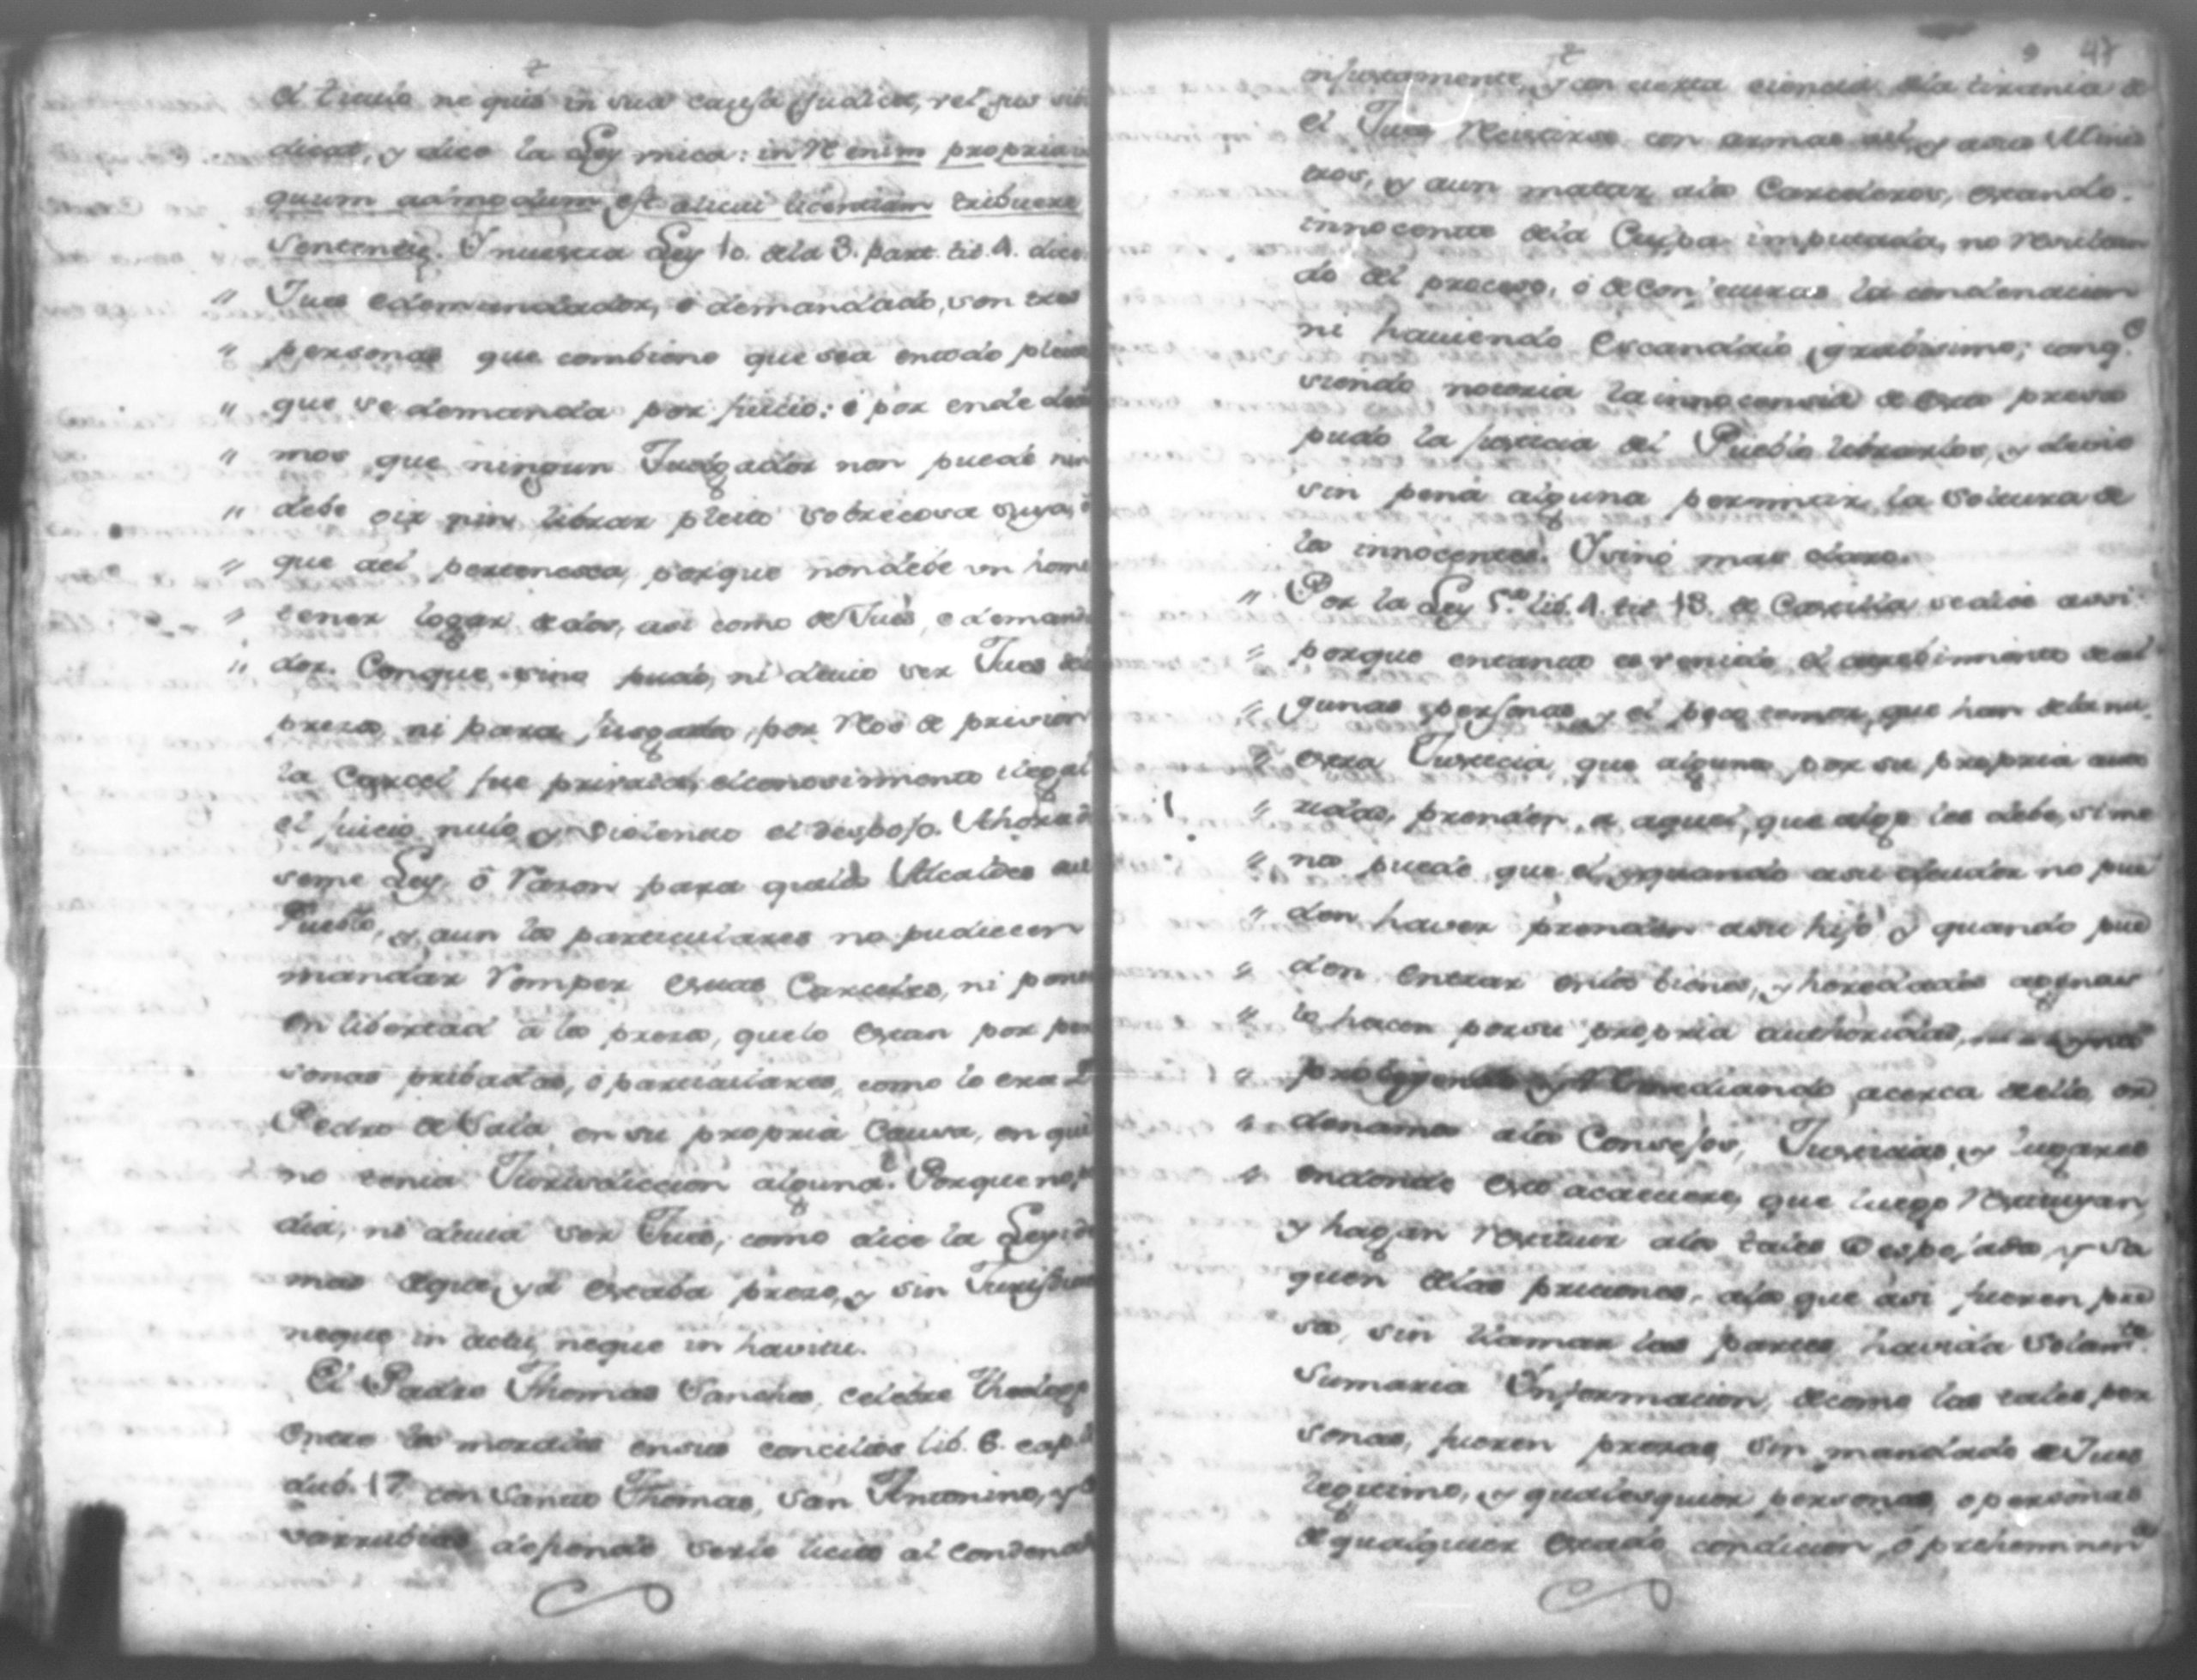 el titulo ne quis in sua causa judicet, vel jus sibi
dicat, y dice la Ley unica: in re enim propria
quum admodum est alicui licentiam tribuere
sententiæ. Y nuestra Ley 10. dela 3. part. tit. 4. dice
" Jues edemandador, e demandado, son tres
" personas que combiene que sea en todo pleito
" que se demanda por juicio: e por ende deci
" mos que ningun Judgador non puede nin
" debe oir nin librar pleito sobre cosa suya, o
" que ael pertenesca, porque non debe un home
" tener logar de dos, asi como de Jues, e demanda
" dor. Conque sino pudo, ni devio ser Jues
preso, ni para jusgado, por Reo de pricion
la Carcel fue privada, el conosimiento ilegal
el juicio nulo, y violento el despojo. Ahora
seme Ley, ó Razon para que los Alcaldes
Pueblo, y aun los particulares no pudiecen
mandar Romper estas Carceles, ni poner
en libertad á los presos, que lo estan por per
sonas pribadas, ó particulares, como lo era Dn
Pedro de Sala en su propria Causa, en que
no tenia Jurisdiccion alguna. Porque no po
dia, ni devia ser Jues, como dice la Ley
mas de que, ya estaba preso, y sin Jurisdiccion
neque in actu, neque in havitu.
El Padre Thomas Sanches, celebre Theologo
entre los morales en sus concilios lib. 6. cap.
dub. 17 con Santo Thomas, San Antonino, y Co
varrubias defiende serle licito al condenado
47
injustamente, y con cierta ciencia dela tirania de
el Jues Resistirse con armas ael, y asus Minis
tros, y aun matar alos Carceleros, estando
innocente dela Culpa imputada, no Resultan
do del proceso, ó de conjeturas la condenacion
ni haviendo Escandalo grabisimo; conq.e
siendo notoria la innocensia de estos presos
pudo la justicia del Pueblo librarlos, y devio
sin pena alguna permitir la soltura de
los innocentes. Y sino mas claro.
" Por la Ley 5.a lib. 4. tit. 13. de Castilla se dice assi:
" porque entanto es venido el atrebimiento de al
" gunas personas, y el poco temor, que han dela nu
" estra Justicia, que algunos por su propria auto
" ridad, prenden, a aquel, que algo les debe, si me
" nos puede que el, y quando asu deudor no pue
" den haver prenden asu hijo y quando pue
" den entrar enlos bienes, y heredades agenas
" lo hacen por su propria authoridad,
" Remediando acerca dello, or
" denamos alos Consejos, Justicias, y lugares
" endonde esto acaeciere, que luego Restituyan,
y hagan restituir alos tales Despojados, y sa
quen delas priciones, alos que asi fueren pre
sos, sin llamar las partes, havida solam.te
Sumaria Informacion, de como las tales per
sonas, fueren presas, sin mandado de Jues
legitimo, y qualesquier personas, o personas
de qualquier estado, condicion, ó preheminen